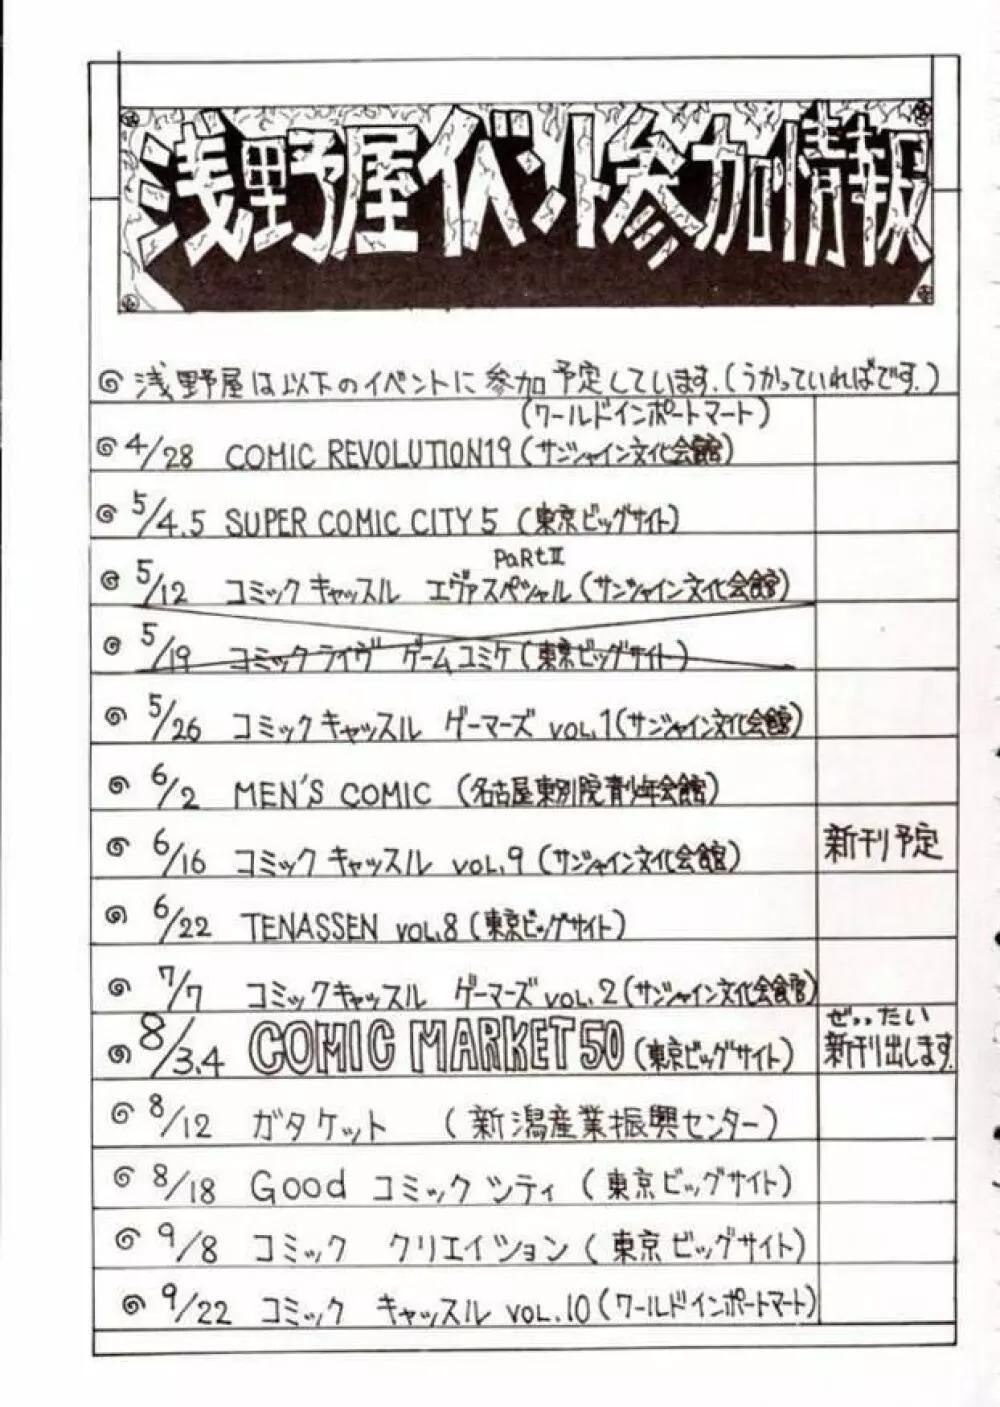 浅野屋イベント参加情報
浅野屋は以下のイベントに参加予定しています.(うかっていればです.)
(ワールドインポートマート)
4/28 COMIC REVOLUTION19(サンシャイン文化会館)
5/4.5 SUPER COMIC CITY 5 (東京ビッグサイト)
PaRtⅡ
5/12 コミック キャッスル エヴァスペシャル(サンシャイン文化会館)
5/19 コミックライヴ ゲームコミケ(東京ビッグサイト)
5/26 コミックキャッスル ゲーマーズ VOL.1(サンシャイン文化会館)
6/2 MEN'S COMIC (名古屋東別院青少年会館)
6/16 コミックキャッスル VOL.9(サンシャイン文化会館) 新刊予定
6/22 TENASSEN VOL.8(東京ビッグサイト)
7/7 コミックキャッスル ゲーマーズ VOL.2(サンシャイン文化会館)
ぜったい
8/3.4 COMIC MARKET50(東京ビッグサイト) 新刊出します.
8/12 ガタケット (新潟産業振興センター)
8/18 Good コミックシティ(東京ビッグサイト)
9/8 コミック クリエイション(東京ビッグサイト)
9/22 コミック キャッスル VOL.10(ワールドインポートマート)